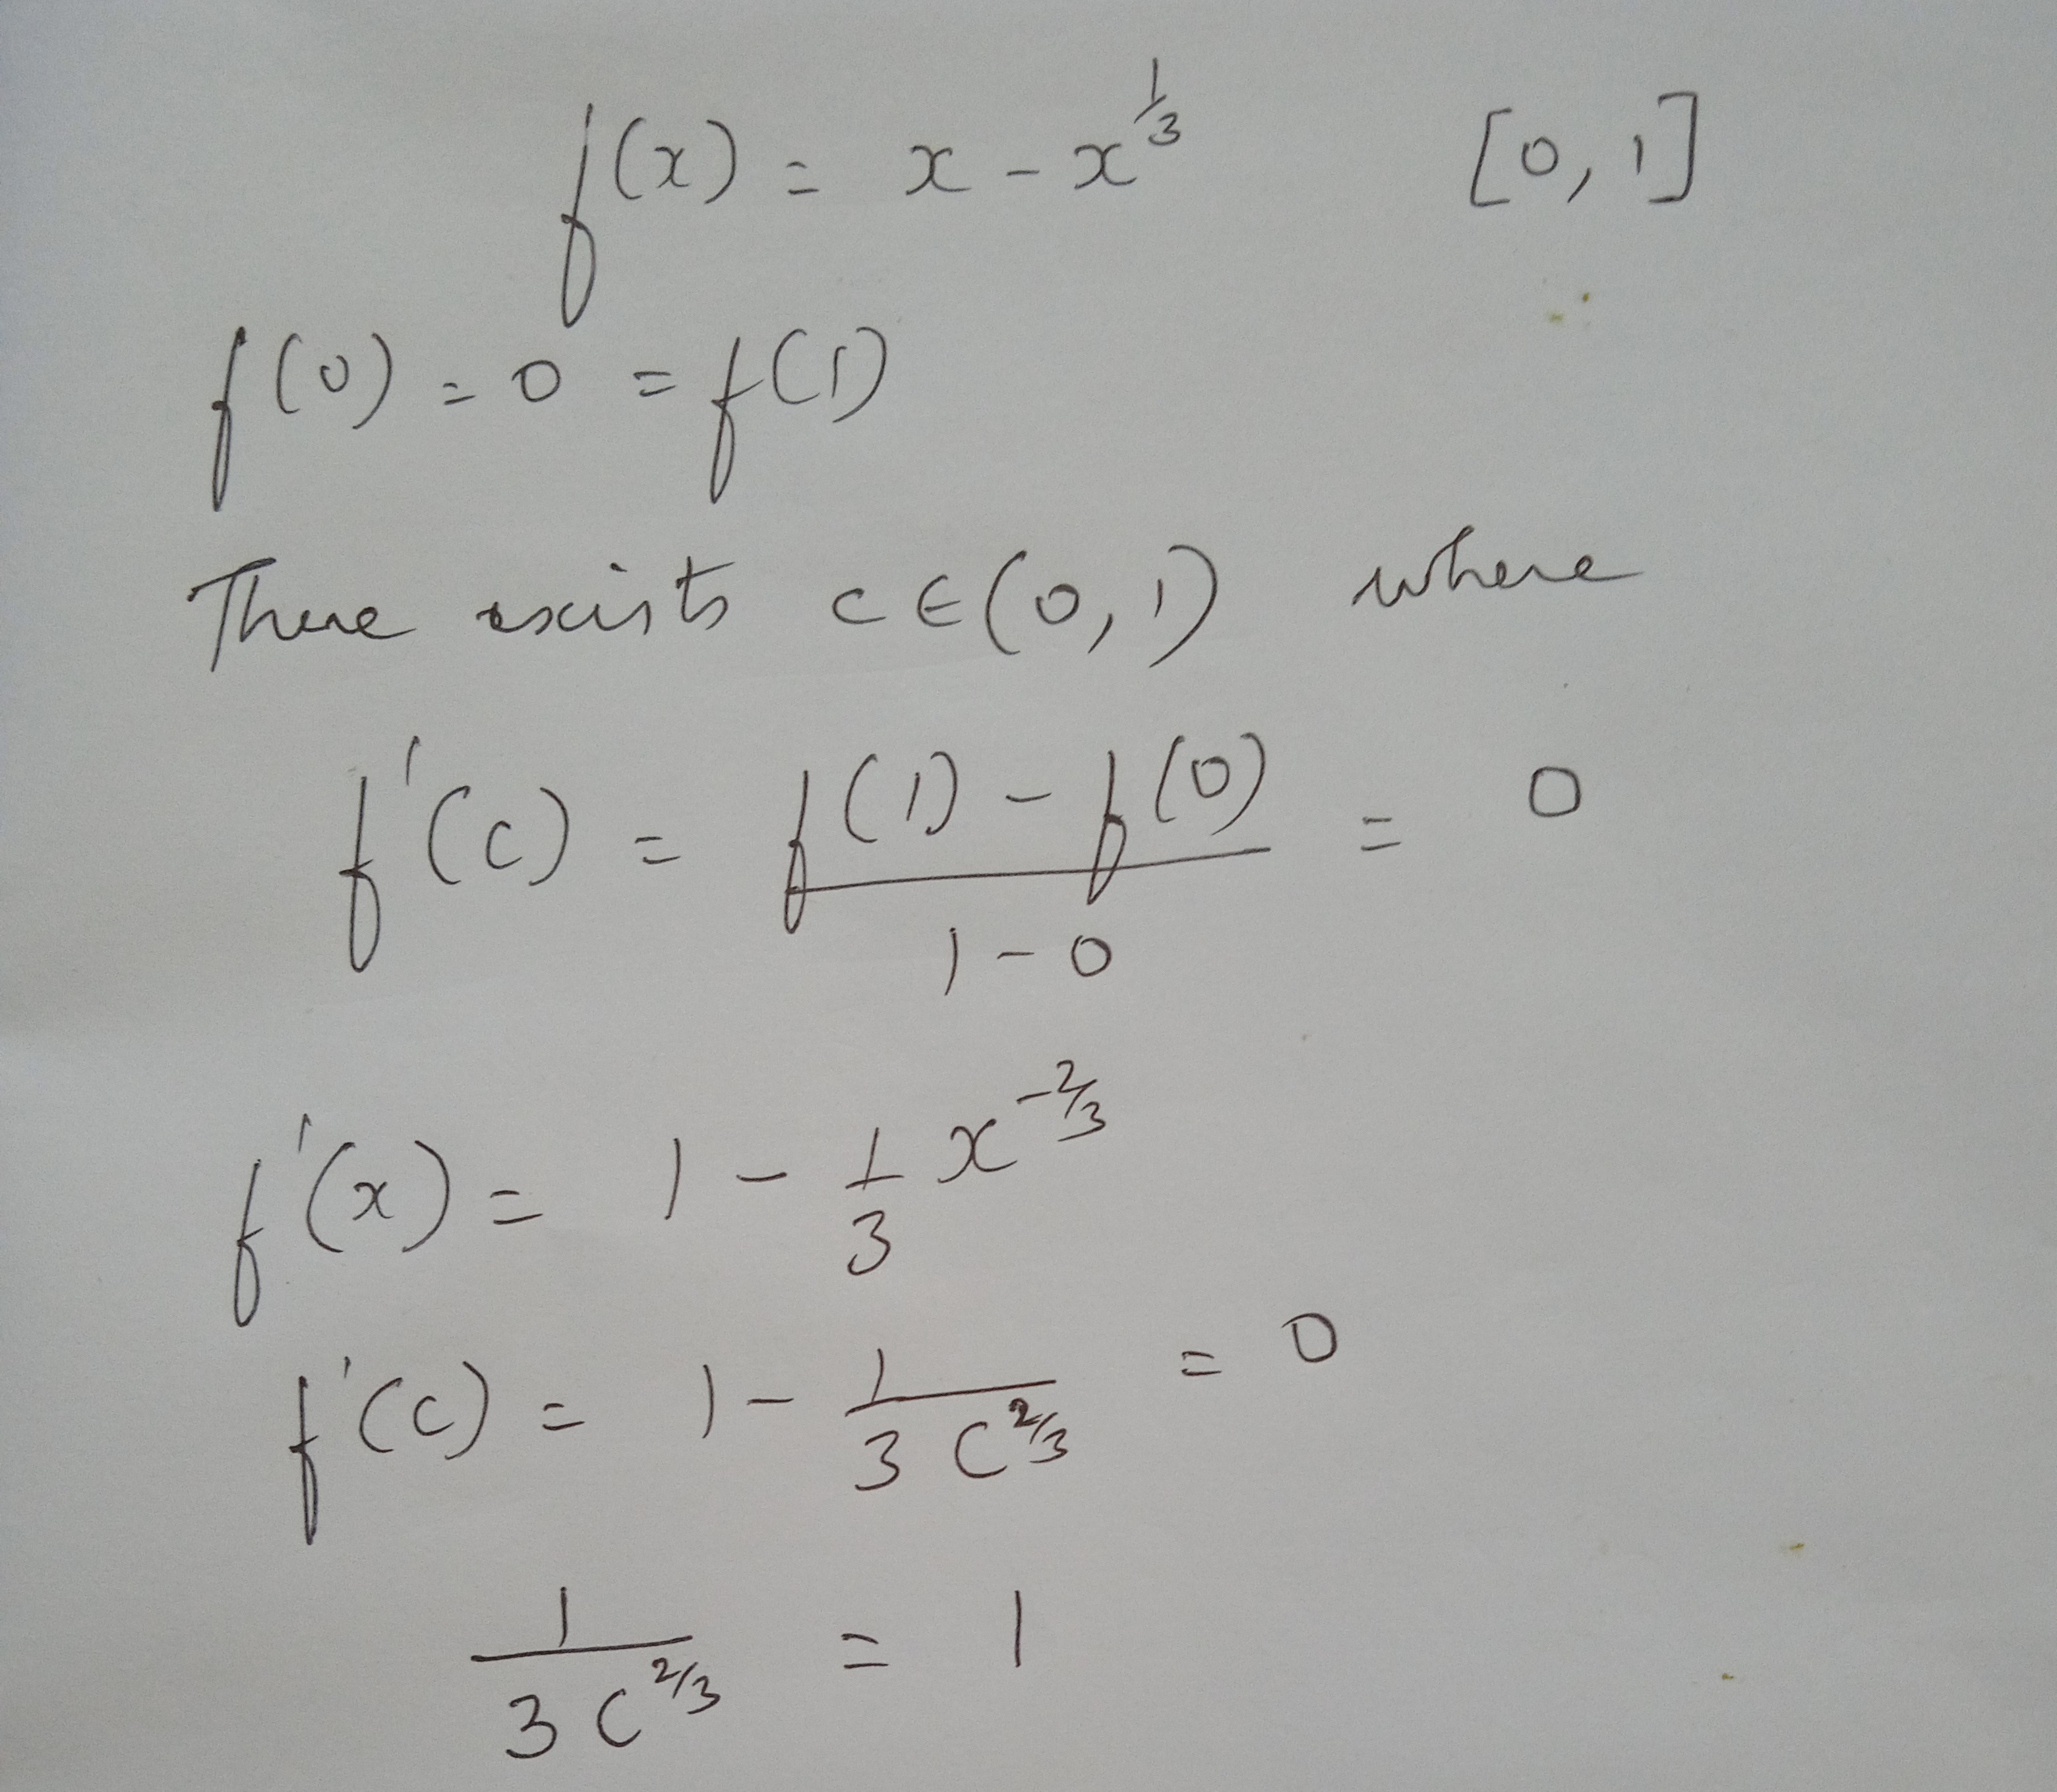 f(x) = x - x^{1/3} [0, 1]
f(0) = 0 = f(1)
There exists c ∈ (0, 1) where
f'(c) = \frac{f(1) - f(0)}{1 - 0} = 0
f'(x) = 1 - \frac{1}{3} x^{-2/3}
f'(c) = 1 - \frac{1}{3 c^{2/3}} = 0
\frac{1}{3 c^{2/3}} = 1